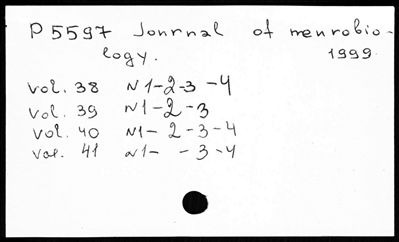 P5597 Journal of neurobio-
logy. 1999
vol. 38 N1-2-3-4
vol. 39 N1-2-3
vol. 40 N1- 2-3-4
vol. 41 N1- -3-4